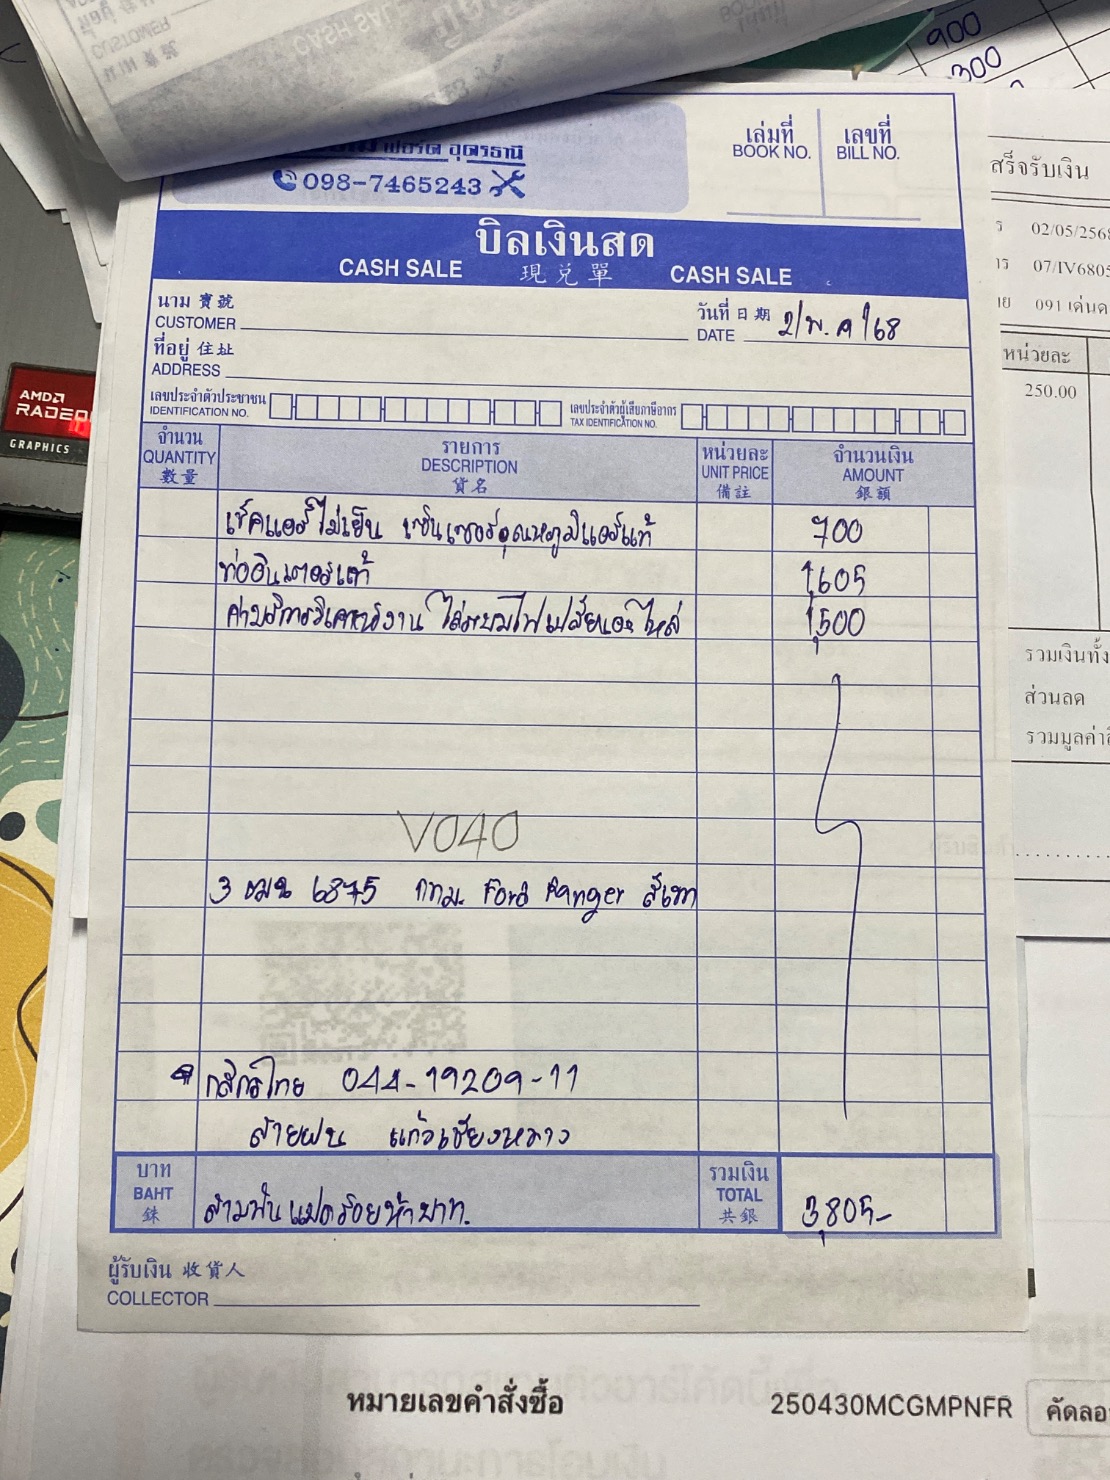 900
300
ฟอร์ด อุดรธานี
098-7465243
เล่มที่
BOOK NO.
เลขที่
BILL NO.
บิลเงินสด
CASH SALE 現兑單 CASH SALE
นาม 寶號
CUSTOMER
วันที่ 日期 2/พ.ค/68
DATE
ที่อยู่ 住址
ADDRESS
เลขประจำตัวประชาชน
IDENTIFICATION NO.
เลขประจำตัวผู้เสียภาษีอากร
TAX IDENTIFICATION NO.
จำนวน
QUANTITY
數量
รายการ
DESCRIPTION
貨名
หน่วยละ
UNIT PRICE
備註
จำนวนเงิน
AMOUNT
銀額
เช็คแอร์ไม่เย็น เซ็นเซอร์อุณหภูมิแอร์แท้ 700
ท่ออินเตอร์แท้ 1,605
ค่าบริการวิเคราะห์งาน ไล่ระบบไฟ เปลี่ยนอะไหล่ 1,500
V040
3 ฒฆ 6875 กทม. Ford Ranger สีเทา
กสิกรไทย 044-19209-11
สายฝน แก้วเชียงหวาง
บาท
BAHT
銖
สามพันแปดร้อยห้าบาท.
รวมเงิน
TOTAL
共銀
3,805-
ผู้รับเงิน 收貨人
COLLECTOR
สร็จรับเงิน
02/05/256
07/IV6805
091 เด่นด
หน่วยละ
250.00
รวมเงินทั้ง
ส่วนลด
รวมมูลค่าสิ
AMD
RADEO
GRAPHICS
หมายเลขคำสั่งซื้อ 250430MCGMPNFR คัดลอ